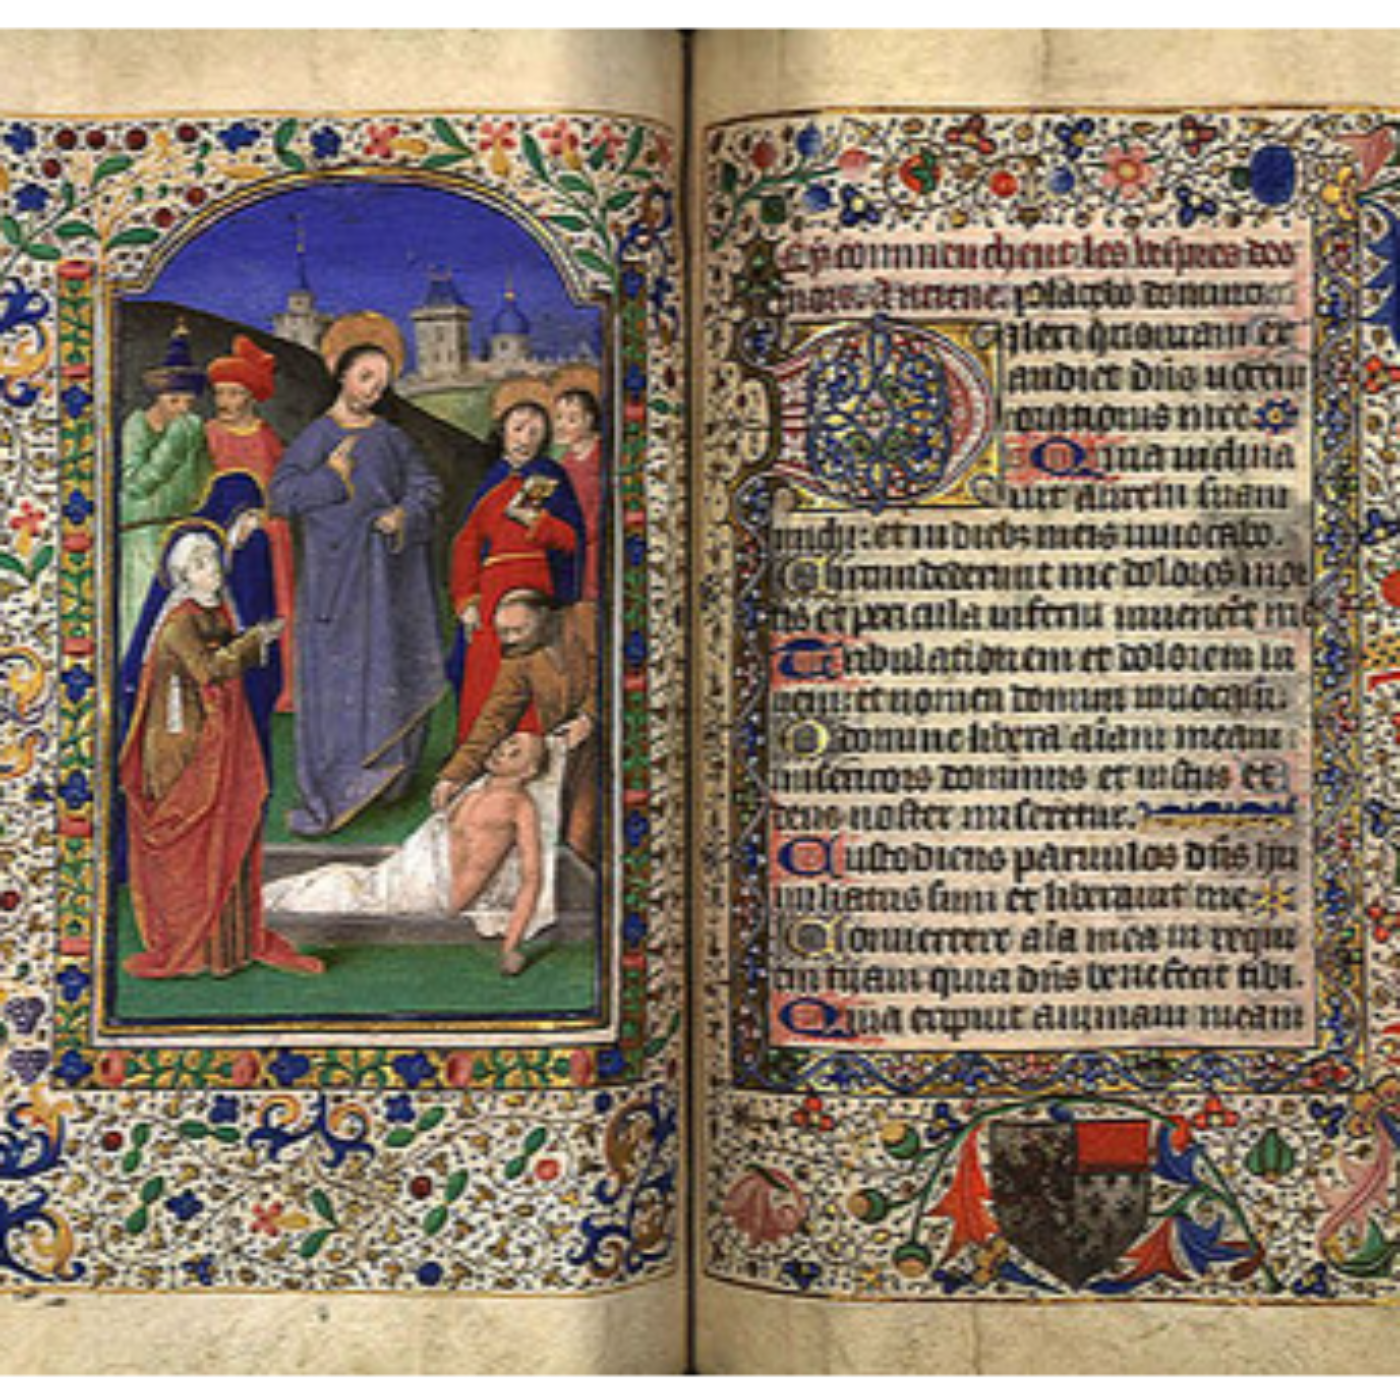 Cy commenchent les vespres des
mors. Antene. placebo domino
Dilexi quoniam ex
audiet dñs uocem
orationis mee
Quia inclina
uit aurem suam
michi: et in diebȝ meis inuocabo.
Circumdederunt me dolores mor
tis et pericula inferni inuenerūt me
Tribulationem et dolorem in
ueni et nomen domini inuocaui.
O domine libera aīam meam
misericors dominus et iustus et
deus noster miseretur.
Custodiens paruulos dñs hu
miliatus sum et liberauit me
Conuertere aīa mea in requi
em tuam quia dñs benefecit tibi.
Quia eripuit animam meam